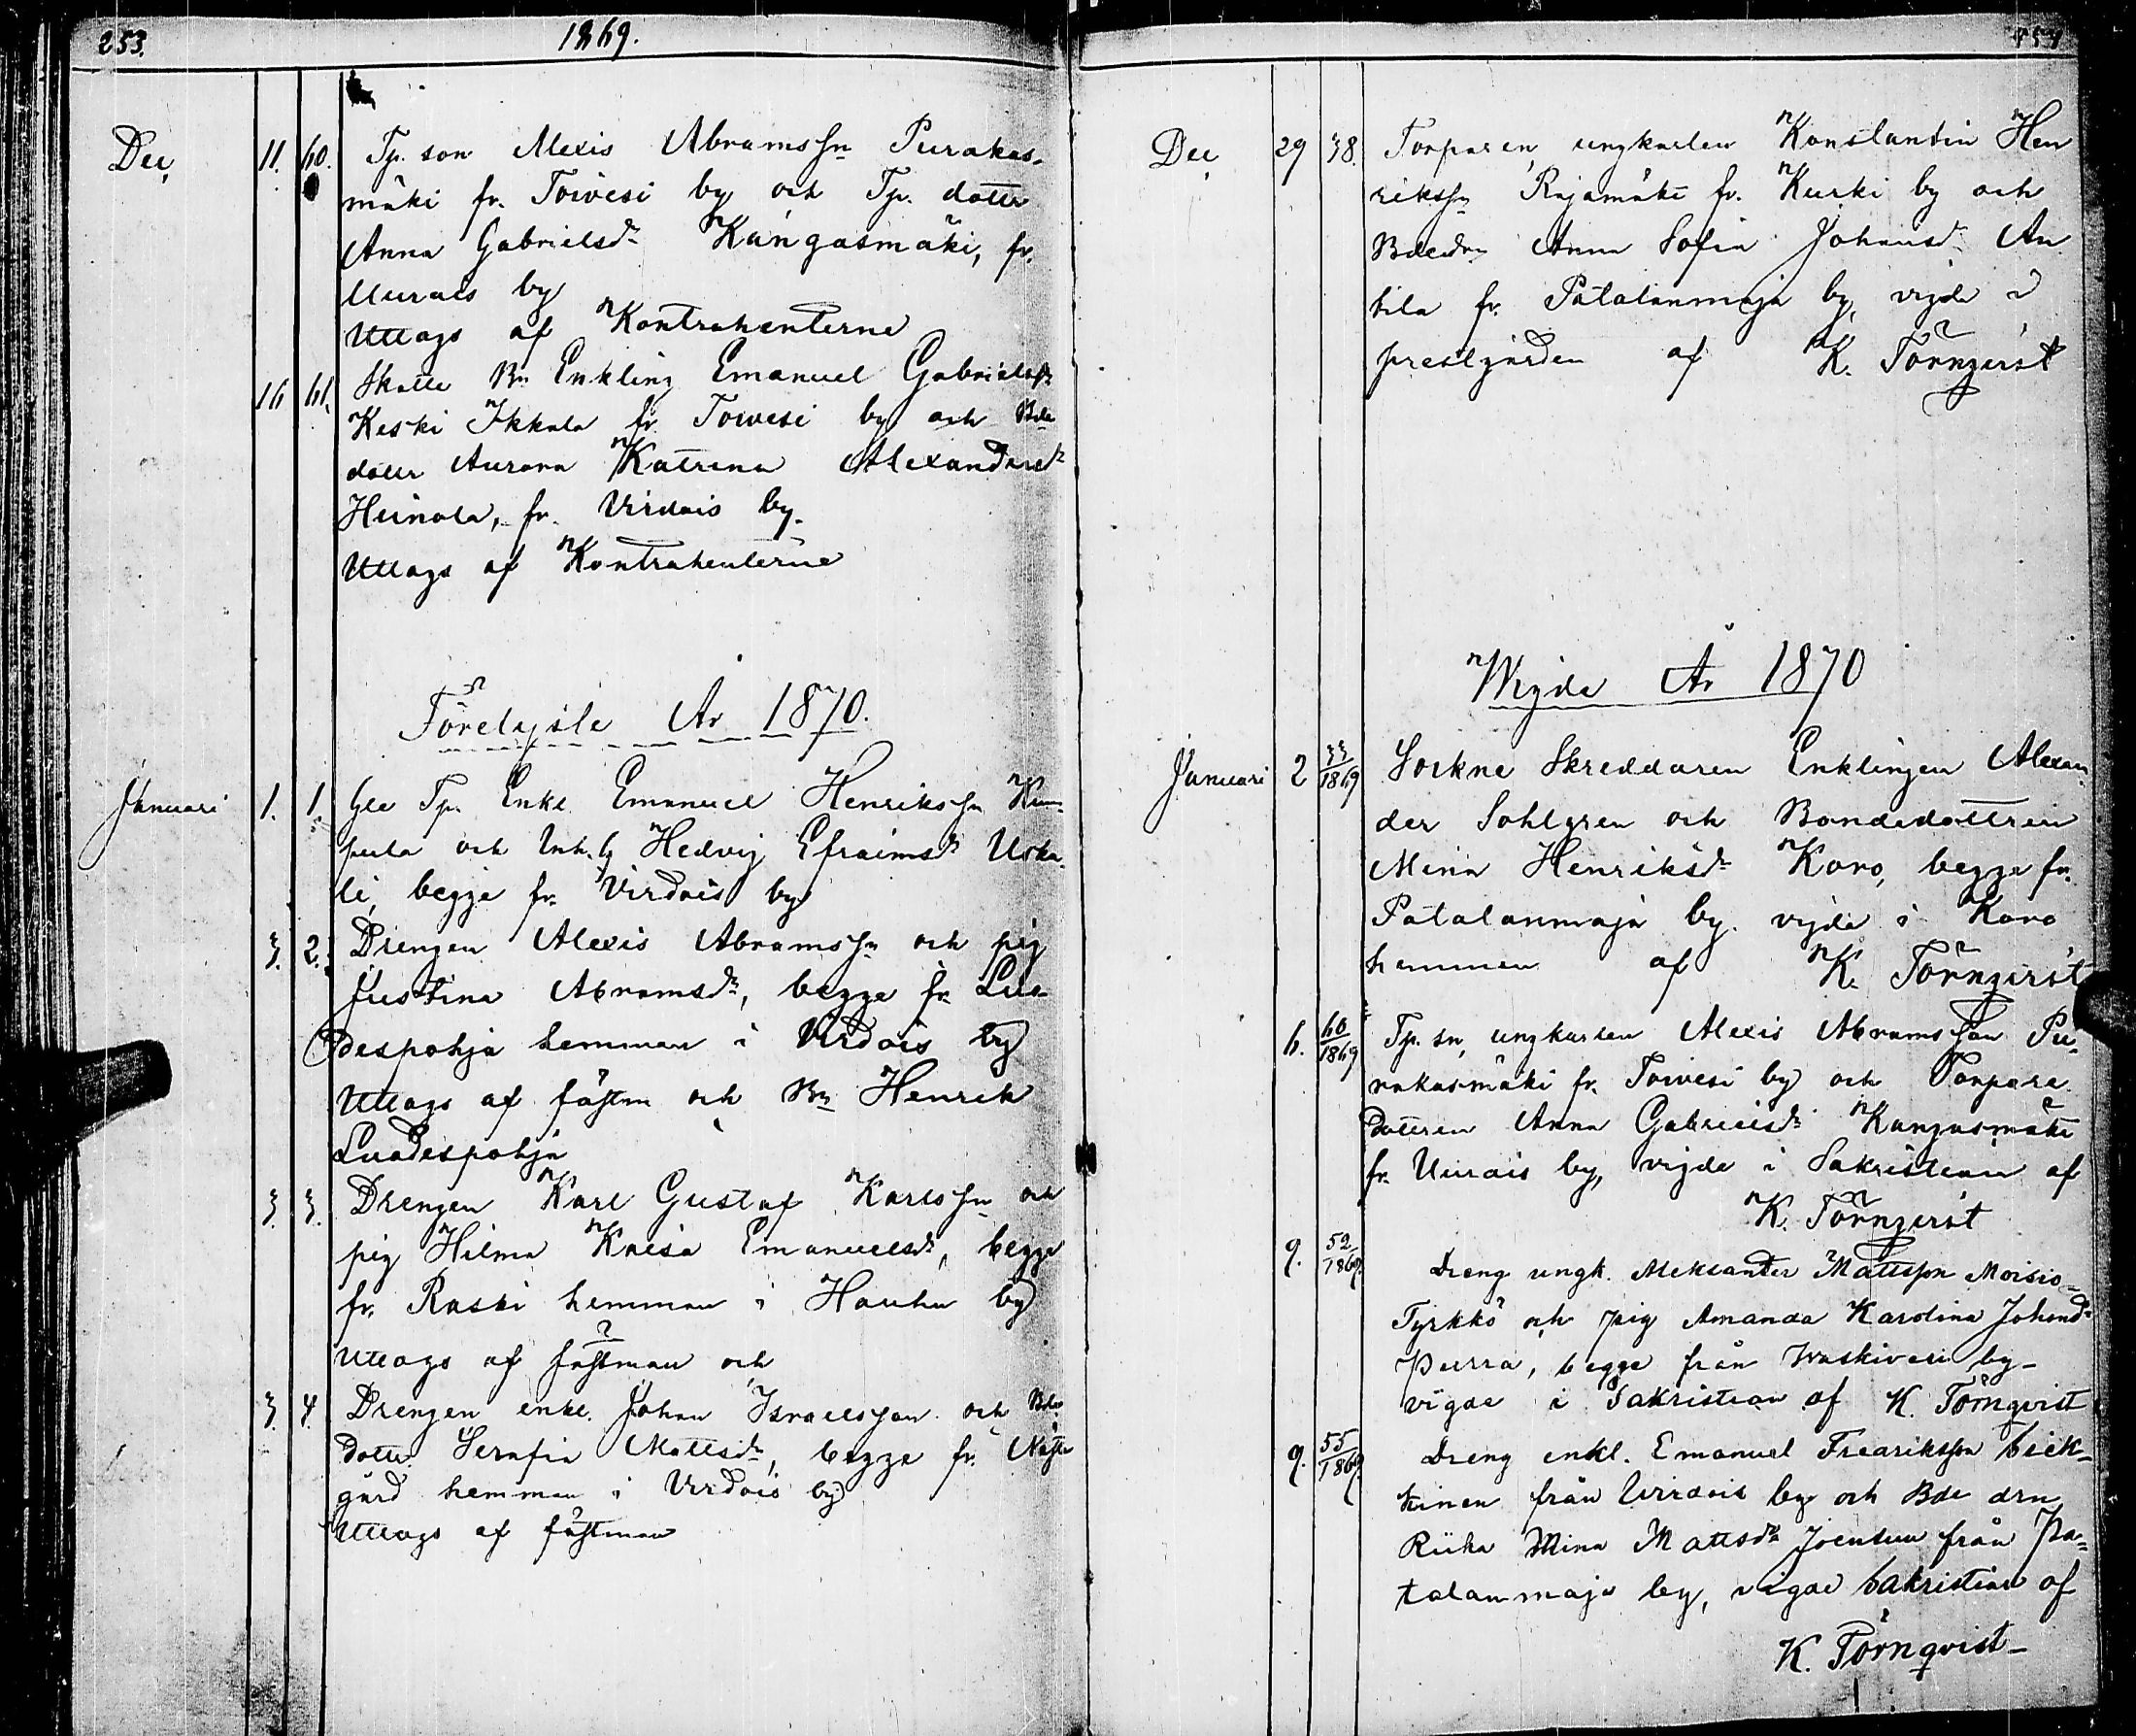 253.
1869.
Dec, 11. 60. Tp. son Alexis Abramssn Purakas-
mäki fr. Toivesi by och Tp. dotter
Anna Gabrielsdr Kangasmäki, fr.
Uurais by
Uttags af Kontrahenterne
16 61. Skatte Bn Enkling Emanuel Gabrielssn
Keski Ikkala fr. Toivesi by och Bde
dotter Aurora Katrina Alexandersdr
Heinola, fr. Virdois by.
Uttags af Kontrahenterne
Förelyste År 1870.
Januari 1. 1. Gle Tp. Enkl Emanuel Henrikssn
och Inh. Hedvig Efraimsdr Uska-
li, begge fr. Virdois by
3. 2. Drengen Alexis Abramssn och pig
Justina Abramsdr, begge fr. Lua-
despohja hemman i Virdois by
Uttags af fästm och Bn Henrik
Luodespohja
3. 3. Drengen Karl Gustaf Karlssn och
pig Hilma Kaisa Emanuelsdr, begge
fr. Raski hemman i Hauhu by
Uttags af fästman och
3. 4. Drengen enkl. Johan Israelsson och Bde
dotter Serafia Mattsdr, begge fr.
gård hemman i Virdois by
Uttags af fästman
254
Dec, 29 38. Torparen, ungkarlen Konstantin Hen
rikssn Rajamäki fr. Kurki by och
Bdedrn Anna Sofia Johansdr An
tila fr. Patalanmaja by, vigda i
prestgården af K. Törnqvist
Wigde År 1870
Januari 2 33/1869 Sockne Skreddaren Enklingen Alexan
der Sohlgren och Bondedottren
Mina Henriksdr Koro, begge fr.
Patalanmaja by. vigda i Koro
hemman af K. Törnqvist
6. 60/1869 Tp. sn, ungkarlen Alexis Abramsson Pu-
rakasmäki fr. Toivesi by och Torpare
dottren Anna Gabrielsdr Kangasmäki
fr. Uurais by, vigda i Sakristian af
K. Törnqvist
9. 52/1869. Dreng ungk. Aleksander Mattsson Moisio-
Tyrkkö och pig Amanda Karolina Johansdr
Purra, begge från Waskivesi by-
vigde i Sakristian af K. Törnqvist
9. 55/1869. Dreng enkl. Emanuel Fredriksson Siek-
kinen från Virdois by och Bde drn
Riika Mina Mattsdr Joensuu från Pa-
talanmaja by, vigde Sakristian af
K. Törnqvist-